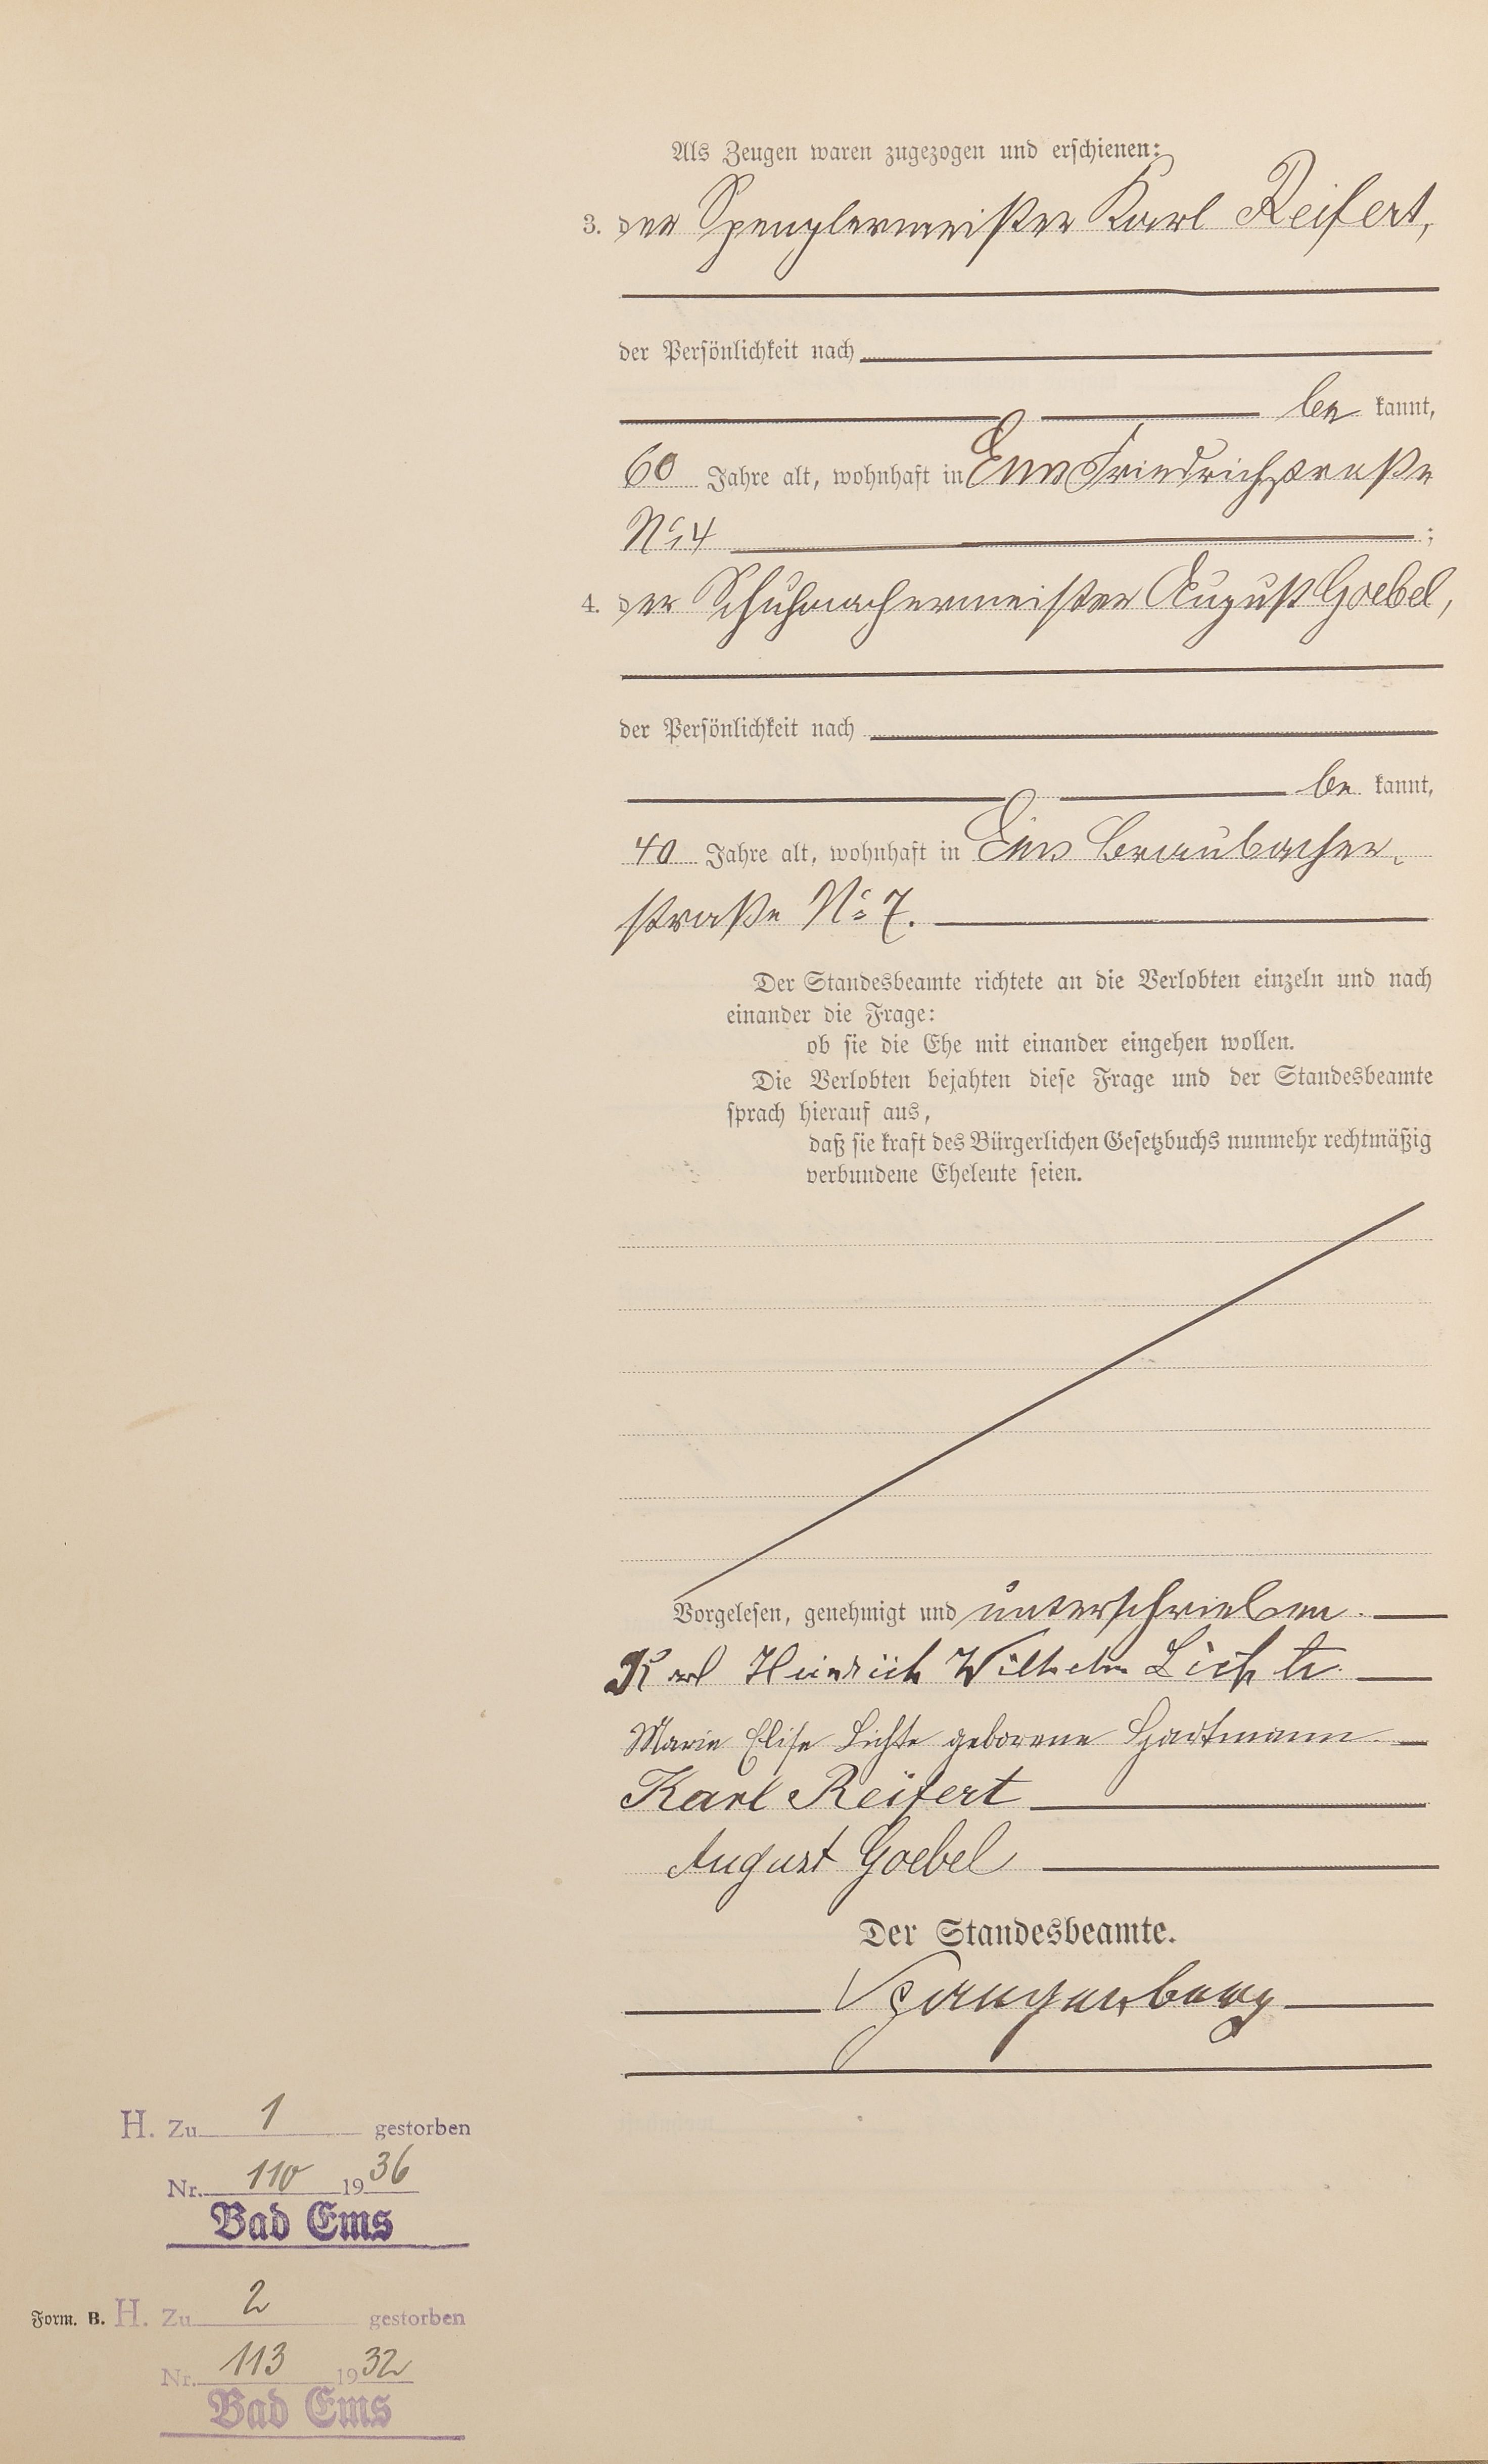 Als Zeugen waren zugezogen und erschienen:
3. der Spenglermeister Karl Reifert,
der Persönlichkeit nach
be kannt,
60 Jahre alt, wohnhaft in Ems Friedrichstraße
No 4 ;
4. der Schuhmachermeister August Goebel,
der Persönlichkeit nach
be kannt,
40 Jahre alt, wohnhaft in Ems Braubacher-
straße No 7.
Der Standesbeamte richtete an die Verlobten einzeln und nach
einander die Frage:
ob sie die Ehe mit einander eingehen wollen.
Die Verlobten bejahten diese Frage und der Standesbeamte
sprach hierauf aus,
daß sie kraft des Bürgerlichen Gesetzbuchs nunmehr rechtmäßig
verbundene Eheleute seien.
Vorgelesen, genehmigt und unterschrieben.
Karl Heinrich Wilhelm Lichte
Marie Elise Lichte geborene Hartmann
Karl Reifert
August Goebel
Der Standesbeamte.
Spangenberg
H. Zu 1 gestorben
Nr. 110 1936
Bad Ems
Form. B. H. Zu 2 gestorben
Nr. 113 1932
Bad Ems